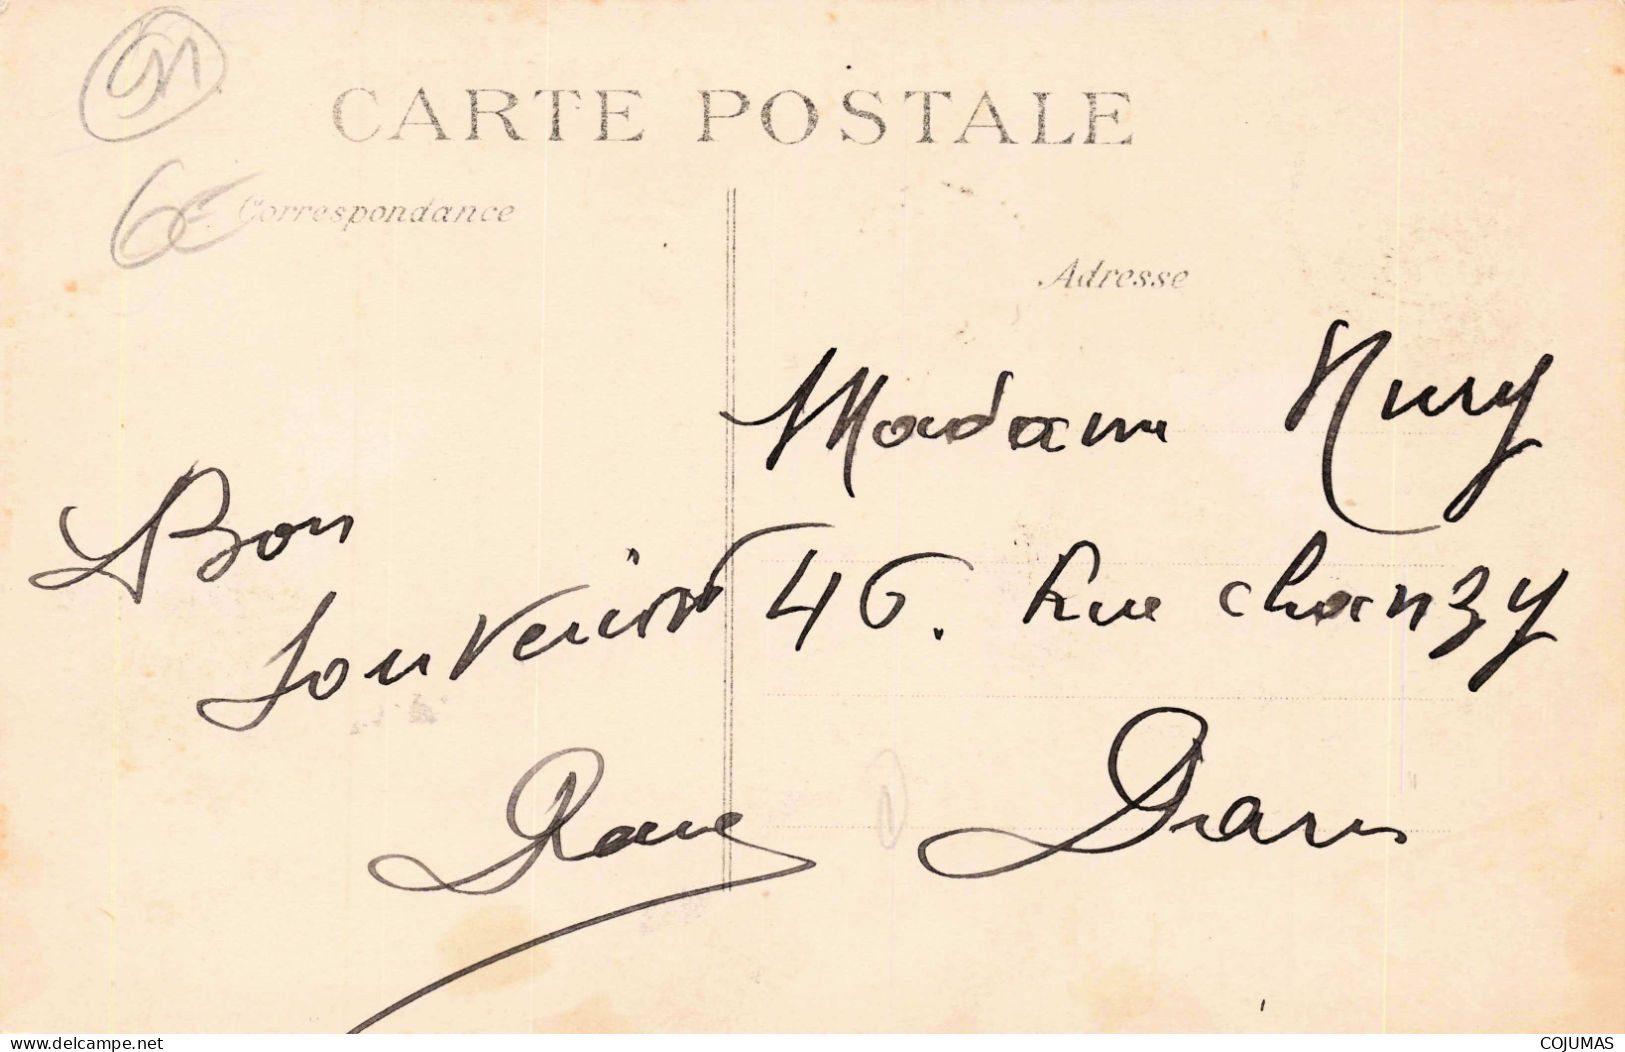 91
CARTE POSTALE
6€
Correspondance
Adresse
Madame Nury
46. Rue Chanzy
Paris
Bon
Souvenir
www.delcampe.net
COJUMAS